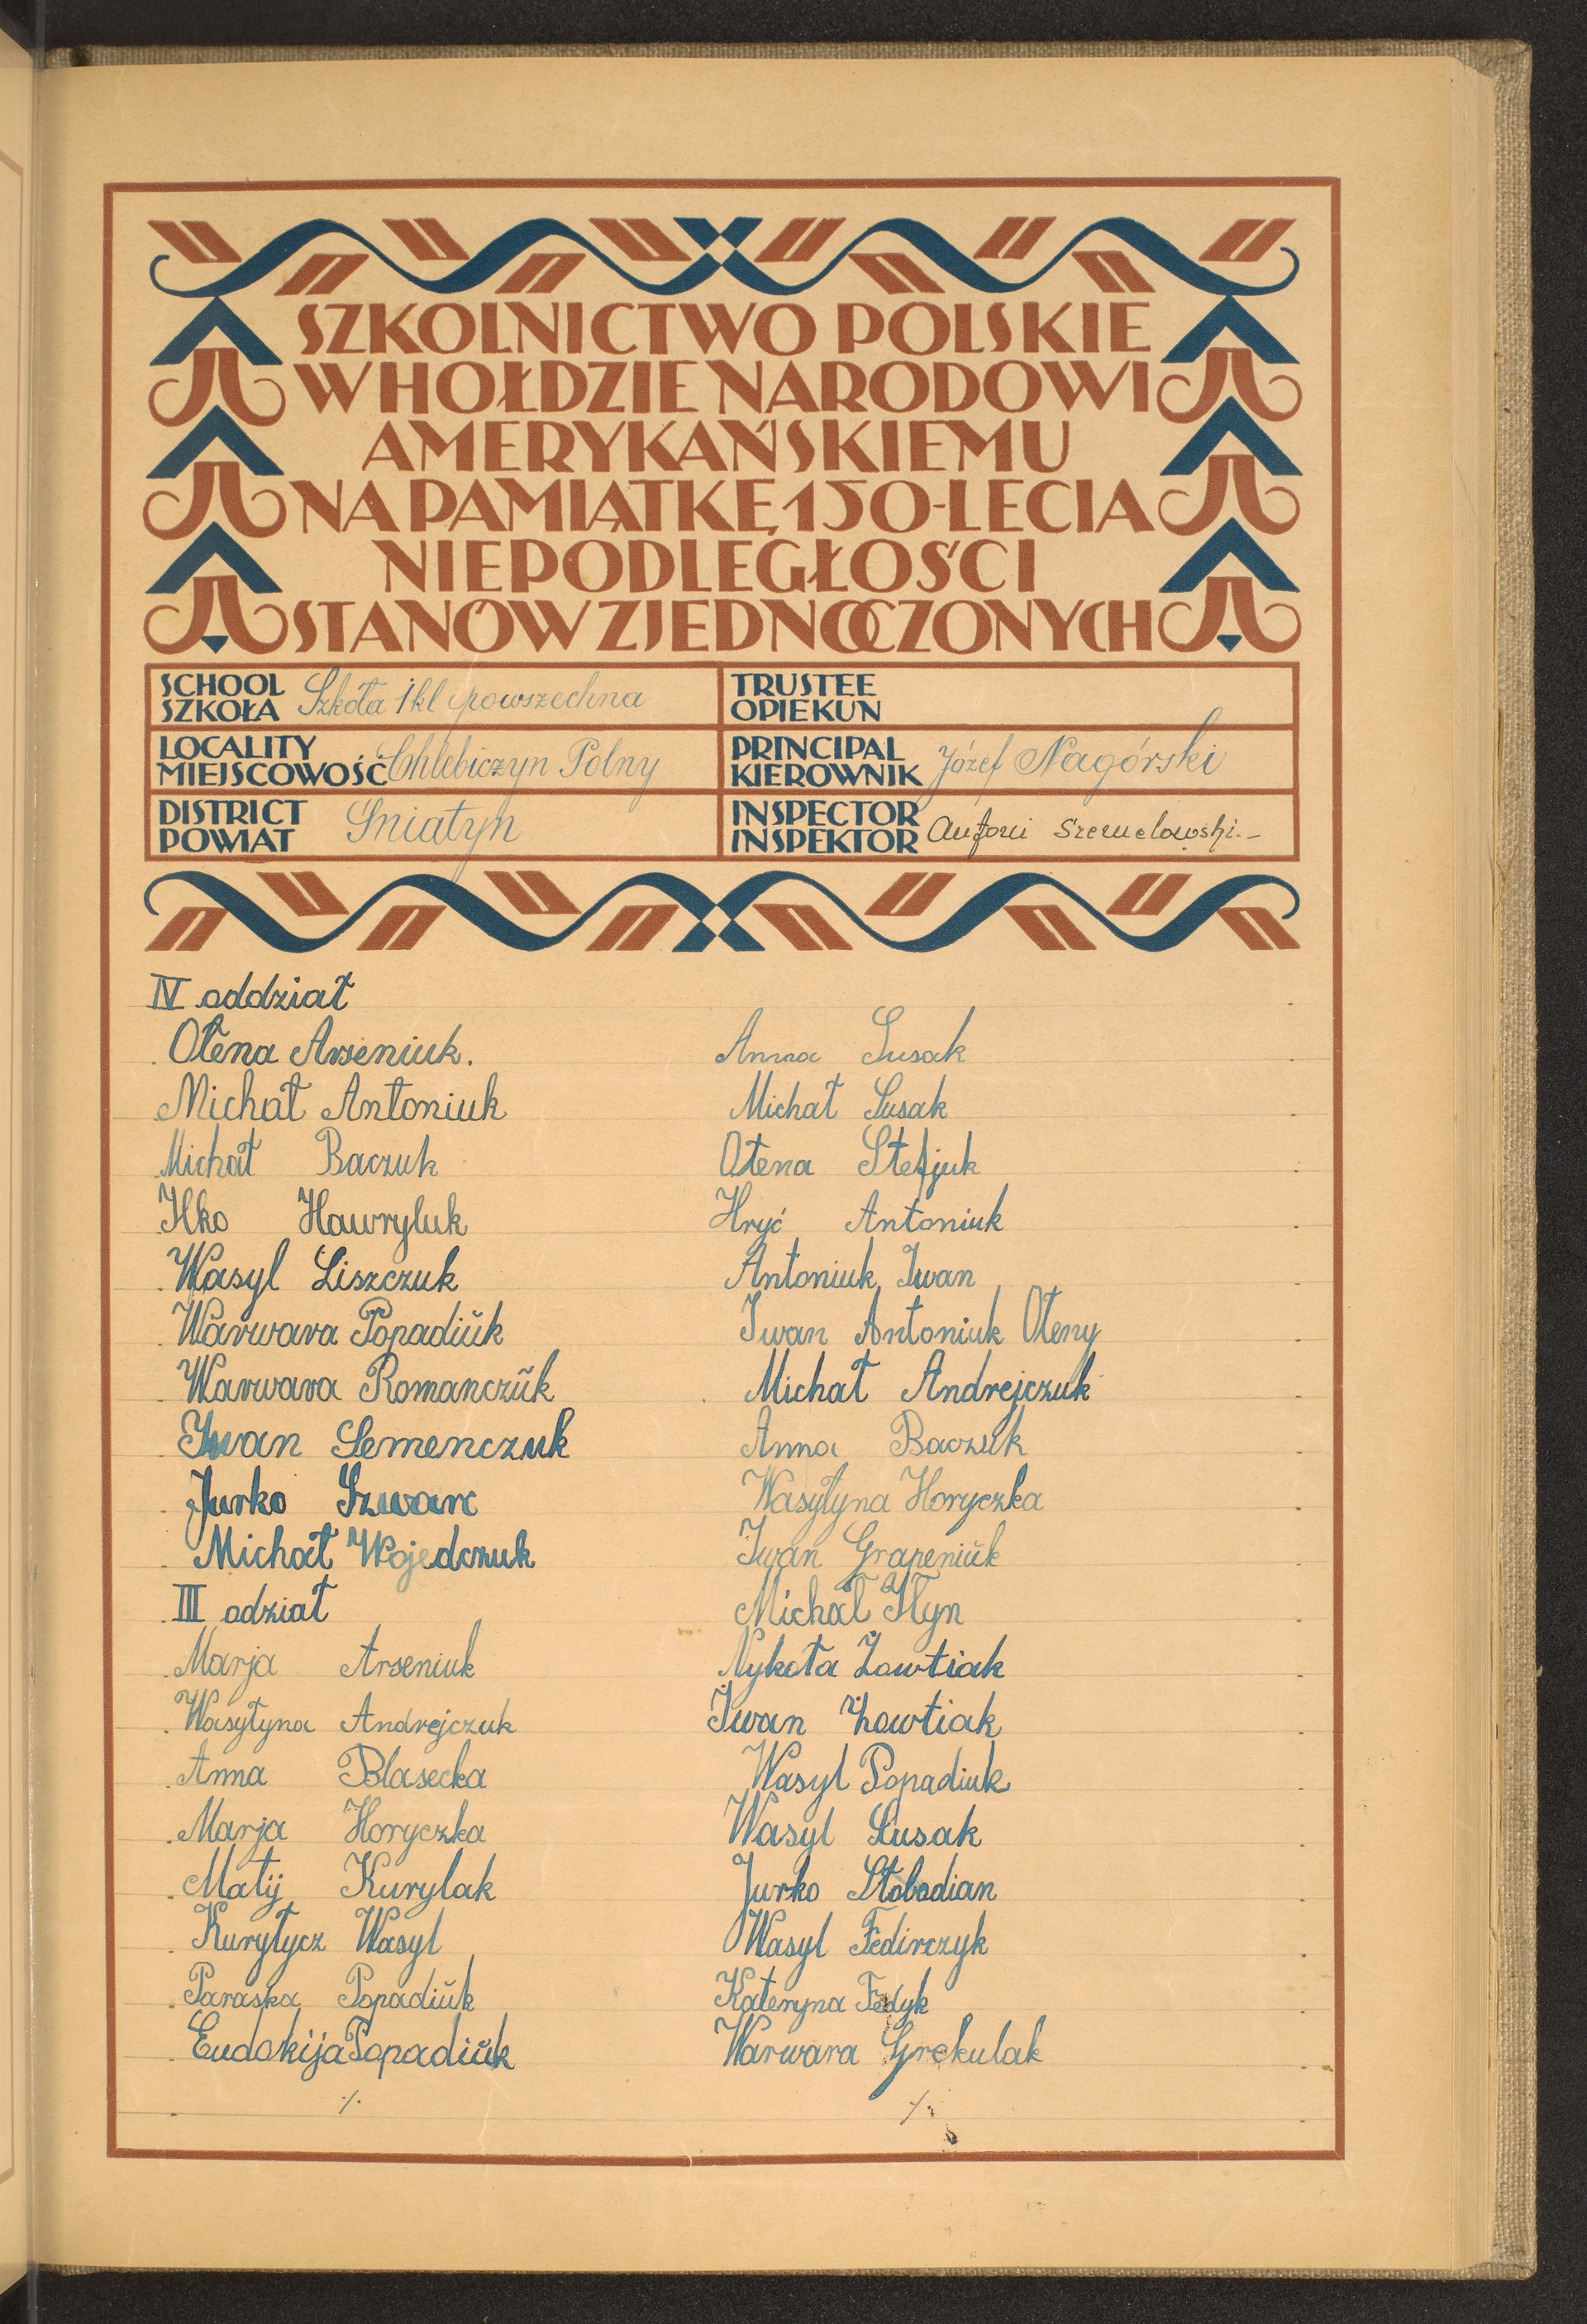 SZKOLNICTWO POLSKIE
W HOŁDZIE NARODOWI
AMERYKAŃSKIEMU
NA PAMIĄTKĘ 150-LECIA
NIEPODLEGŁOŚCI
STANÓW ZJEDNOCZONYCH
SCHOOL
SZKOŁA Szkoła 1 kl powszechna
LOCALITY
MIEJSCOWOŚĆ Chlebiczyn Polny
DISTRICT
POWIAT Sniatyn
TRUSTEE
OPIEKUN
PRINCIPAL
KIEROWNIK Józef Nagórski
INSPECTOR
INSPEKTOR Antoni Szemelowski.-
IV oddział
Ołena Arseniuk.
Michał Antoniuk
Michał Baczuk
Ilko Hawryluk
Wasyl Liszczuk
Warwara Popadiŭk
Warwara Romanczŭk
Iwan Semenczuk
Jurko Szwarc
Michał Wojedczuk
III odział
Marja Arseniuk
Wasyłyna Andrejczuk
Anna Blasecka
Marja Horyczka
Matij Kurylak
Kuryłycz Wasyl
Paraska Popadiŭk
Eudokija Popadiŭk
./.
Anna Susak
Michał Susak
Ołena Stefjuk
Hryć Antoniuk
Antoniuk Iwan
Iwan Antoniuk Ołeny
Michał Andrejczuk
Anna Baczuk
Wasyłyna Horyczka
Iwan Grapeniŭk
Michał Iłyn
Nykoła Żowtiak
Iwan Żowtiak
Wasyl Popadiuk
Wasyl Susak
Jurko Słobodian
Wasyl Fedirczyk
Kateryna Fedyk
Warwara Grekulak
./.